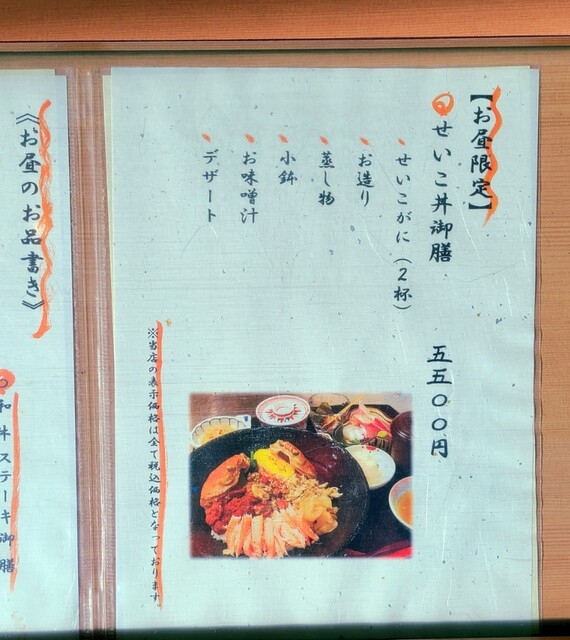 【お昼限定】
せいこ丼御膳 五五〇〇円
せいこがに（２杯）
お造り
蒸し物
小鉢
お味噌汁
デザート
※当店の表示価格は全て税込価格となっております
《お昼のお品書き》
和牛ステーキ御膳